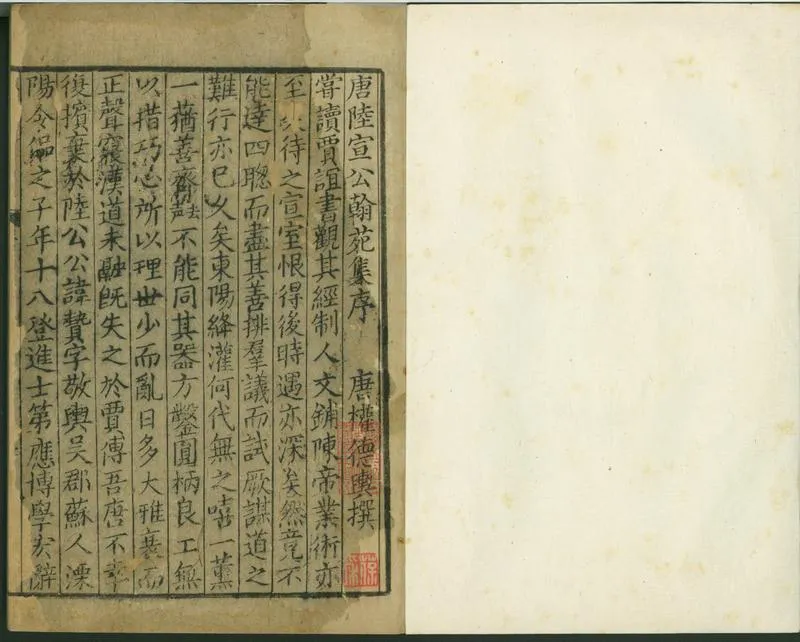 唐陸宣公翰苑集序 唐權德輿撰
嘗讀賈誼書觀其經制人文鋪陳帝業術亦
至 待之宣室恨得後時遇亦深矣然竟不
能達四聰而盡其善排羣議而試厥謀道之
難行亦已久矣東陽絳灌何代無之嘻一薰
一蕕善齊不能同其器方鑿圓枘良工無
以措巧心所以理世少而亂日多大雅衰而
正聲寢漢道未融旣失之於賈傅吾唐不幸
復擯棄於陸公公諱贄字敬輿吳郡蘇人溧
陽令偘之子年十八登進士第應博學宏辭